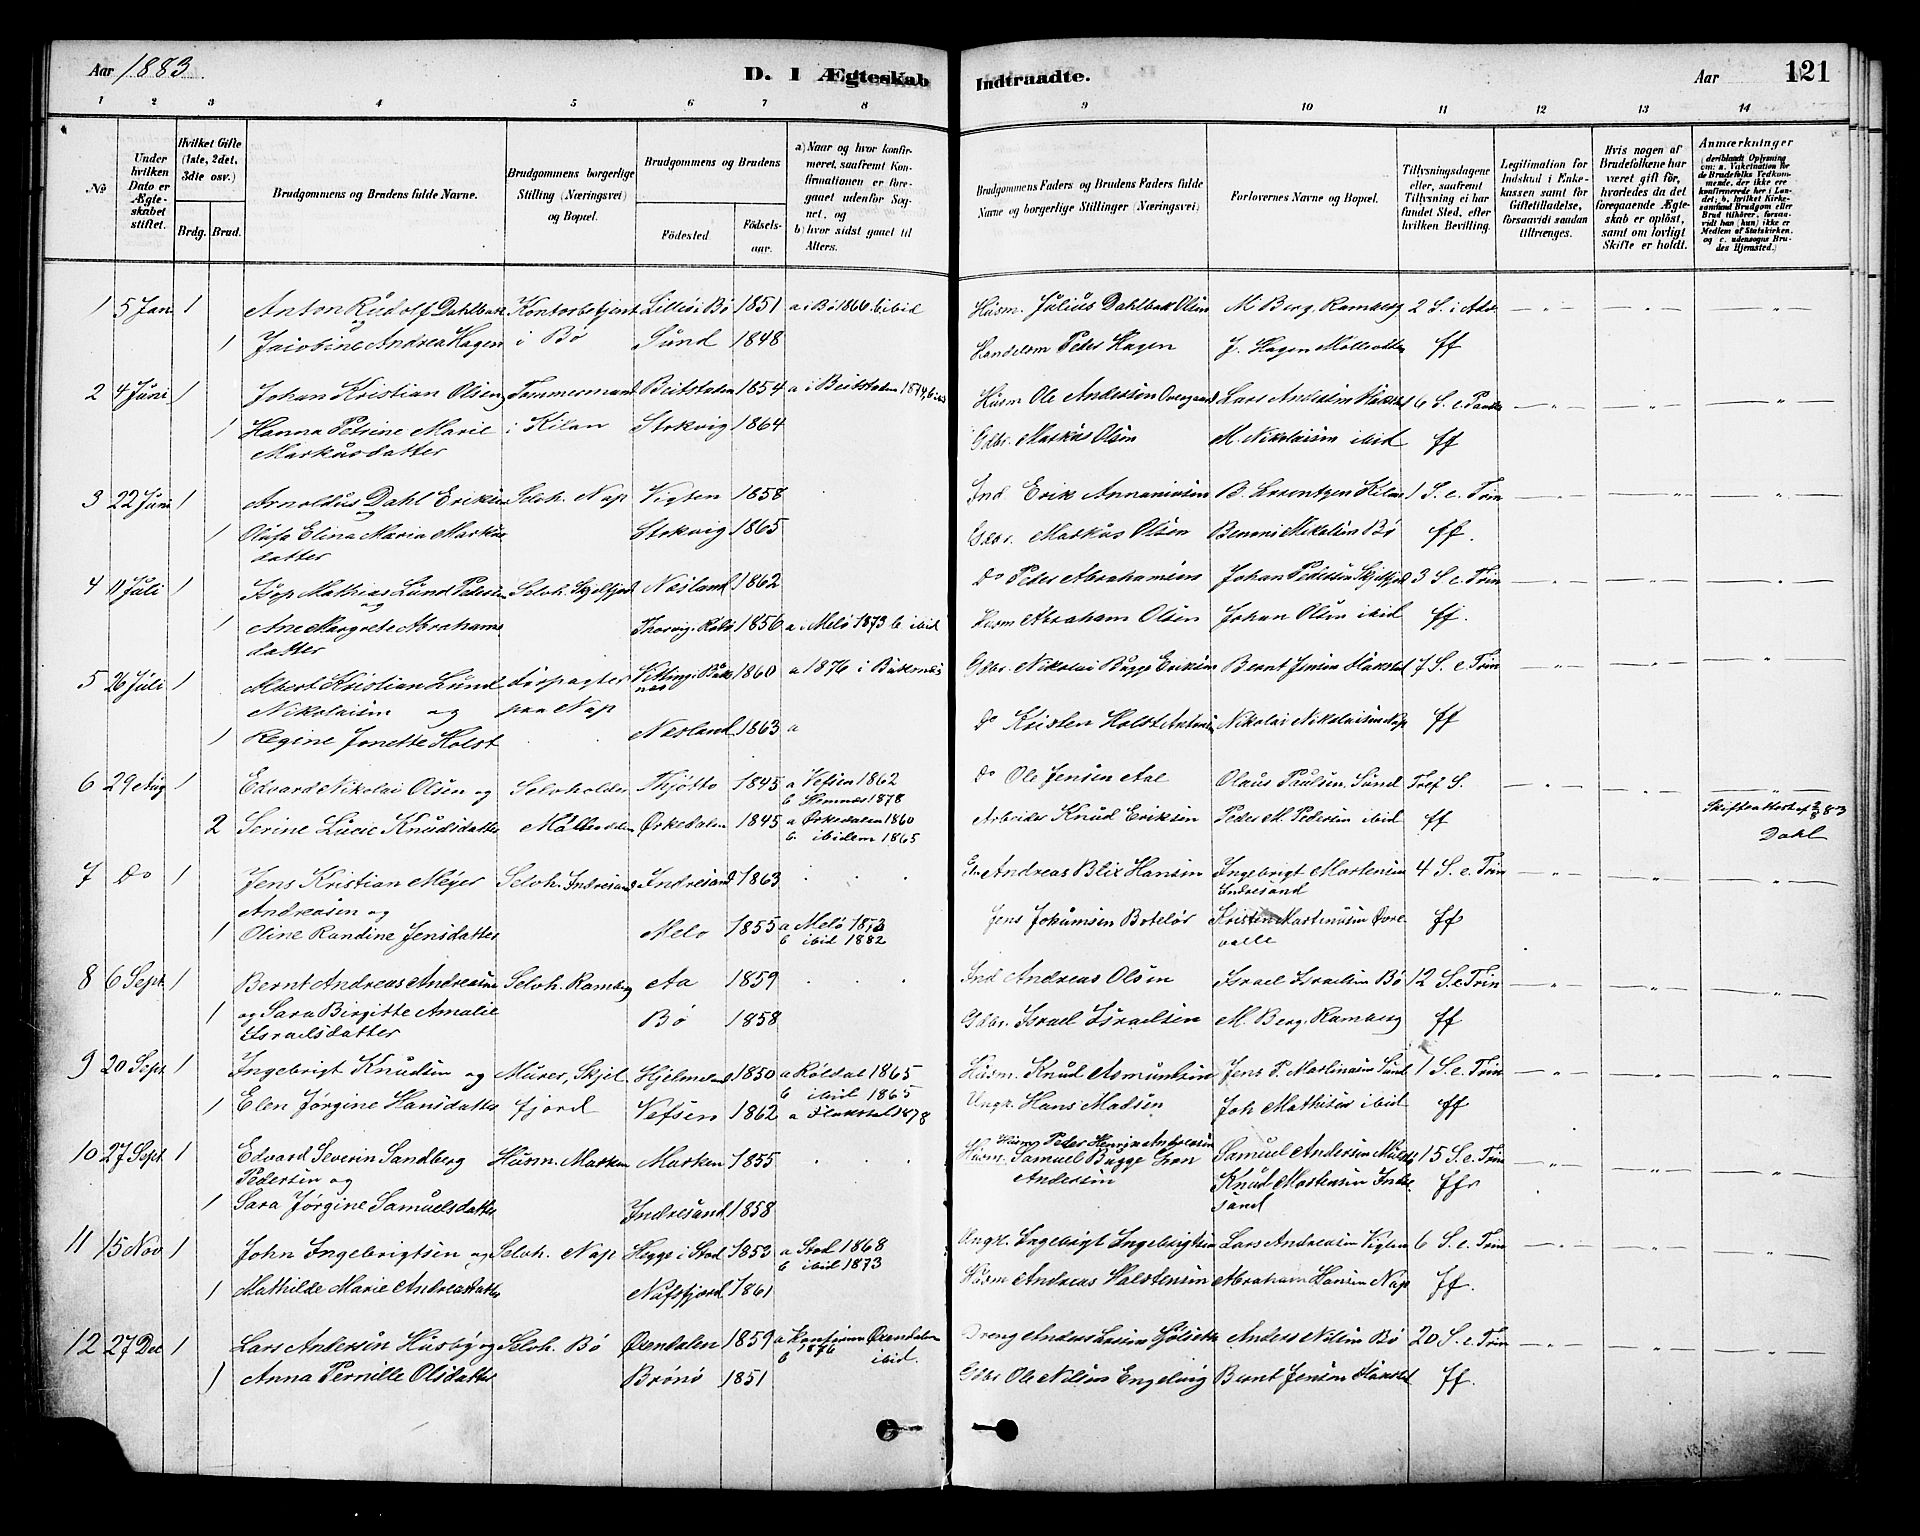 Aar 1883.
D. I Ægteskab Indtraadte.
Aar 121
1 2 3 4 5 6 7 8 9 10 11 12 13 14
No
Under hvilken Dato er Ægteskabet stiftet.
Hvilket Gifte (1ste, 2det, 3die osv.)
Brdg. Brud.
Brudgommens og Brudens fulde Navne.
Brudgommens borgerlige Stilling (Næringsvei) og Bopæl.
Brudgommens og Brudens
Fødested Fødsels-aar.
a) Naar og hvor konfirmeret, saafremt Konfirmationen er foregaaet udenfor Sognet, og
b) hvor sidst gaaet til Alters.
Brudgommens Faders og Brudens Faders fulde Navne og borgerlige Stillinger (Næringsvei)
Forlovernes Navne og Bopæl.
Tillysningsdagene eller, saafremt Tillysning ei har fundet Sted, efter hvilken Bevilling.
Legitimation for Indskud i Enkekassen samt for Giftetilladelse, forsaavidt saadan tiltrænges.
Hvis nogen af Brudefolkene har været gift før, hvorledes da det foregaaende Ægteskab er opløst, samt om lovligt Skifte er holdt.
Anmærkninger
1 5 Jan 1 Anton Rudolf Dahlbak Kontorbetjent Lilleø i Bø 1851 a i Bø 1866. b ibid Husm. Julius Dahlbak Olsen M Berg, Ramberg 2 S. i Adv
og
1 Jacobine Andrea Hagen i Bø Sund 1848 Handelsm Peter Hagen J. Hagen ff
2 4 Juni 1 Johan Kristian Olsen Tømmermand Beitstaden 1854 a i Beitstaden 1874, b ibid Husm Ole Andersen Lars Andersen 6 S. e. Paaske
1 Hanna Petrine Marie i Kilan Stokvig 1864 Gdbr. Markus Olsen M. Nikolaisen ibid ff
Markusdatter
3 22 Juni 1 Arnoldus Dahl Eriksen Selvh. Nap Vigten 1858 Ind Erik Annaniasen B. Lorentzen Kilan 1 S. e. Trin
og
1 Olufa Elina Maria Markus Stokvig 1865 Gdbr. Markus Olsen Benoni Nikolisen Bø ff.
datter
4 11 Juli 1 Mathias Lund Pedersen Selvh. Skjelfjord Næsland 1862 Do Peter Abrahamsen Johan Pedersen Skjelfjord 3 S. e. Trin
og
1 Ane Margrete Abrahams Rødø 1856 a i Melø 1873 b ibid Husm Abraham Olsen Johan Olsen ibid ff.
datter
5 26 Juli 1 Albert Kristian Lund Forpagter 1860 a 1876 i Buksnæs Gdbr. Nikolai Bugge Eriksen Bernt Jensen 7 S. e. Trin
Nikolaisen og paa Nap
1 Regine Jonette Holst Næsland 1863 a Do Kristen Holst Nikolai Nikolaisen Nap ff
6 29 Aug 1 Edvard Nikolai Olsen og Selvholder Thjøtto 1845 a Vefsen 1862 Do Ole Jensen Aal Olaus Paulsen, Sund Tref S.
b Hemnæs 1878
2 Serine Lucie Knudsdatter Ørkedalen 1845 a Ørkedalen 1860 Arbeider Knud Eriksen Peder M. Pedersen ibid ff Skifteattest af 2/8 83
b. ibidem 1865 Dahl
7 Do 1 Jens Kristian Meyer Selvh. Indresand Indresand 1863 Andreas Blix Hansen Ingebrigt Mortensen 4 S. e. Trin
Andreasen og Indresand
1 Oline Randine Jensdatter Melø 1855 a Melø 1873 Jens Jokumsen Boteløs Kristen Martinusen ff
b ibid 1882
8 6 Sept. 1 Bernt Andreas Andreasen Selvh. Ramberg Aa 1859 Ind Andreas Olsen Israel Israelsen Bø 12 S. e Trin
1 og Sara Birgitte Amalie Bø 1858 Gdbr. Israel Israelsen M. Berg, Ramberg ff
Israelsdatter
9 20 Sept. 1 Ingebrigt Knudsen og Murer, Skjel- Hjelmeland 1850 a Røldal 1865 Husm. Knud Asmundsen Jens P. Martinsen Sund 1 S. e. Trin
b ibid 1865
1 Elen Jørgine Hansdatter fjord Vefsen 1862 a Flakstad 1878 Ungk. Hans Madsen Joh Mathisen ibid ff
10 27 Sept. 1 Edvard Severin Sandberg Husm. Marken Marken 1855 Husm Peder Henrik Andreasen Samuel Andersen 15 S. e. Trin
Pedersen og Husm. Samuel Bugge Andersen Knud Mortensen Indresand ff
1 Sara Jørgine Samuelsdatter Indresand 1858
11 15 Nov 1 John Ingebrigtsen og Selvh. Nap Hegge i Stod 1853 a Stod 1868 Ungk. Ingebrigt Ingebrigtsen Lars Andreasen Vigten 6 S. e. Trin
b ibid 1873
1 Mathilde Marie Andreasdatter Nufsfjord 1861 Husm Andreas Halstensen Abraham Hansen Nap ff.
12 27 Dec 1 Lars Andersen Husby og Selvh. Bø Ørendalen 1859 a Ørendalen 1876 Dreng Anders Larsen Anders Nilsen Bø 20 S. e. Trin
b ibid.
1 Anna Pernille Olsdatter Brønø 1851 Gdbr Ole Nilsen Engeling Bernt Jensen ff.